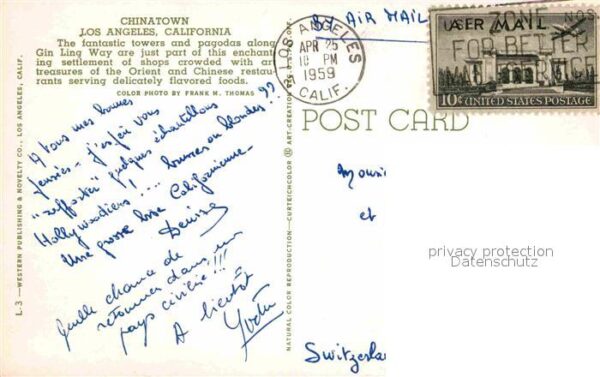 CHINATOWN
LOS ANGELES, CALIFORNIA
The fantastic towers and pagodas along
Gin Ling Way are just part of this enchant-
ing settlement of shops crowded with art
treasures of the Orient and Chinese restau-
rants serving delicately flavored foods.
COLOR PHOTO BY FRANK M. THOMAS
A tous mes bonnes
pensées - j'espère vous
quelques échantillons
Hollywoodiens! ... brunes ou blondes??
Une grosse bise Californienne.
Denise
Quelle chance de
retourner dans un
pays civilisé!!!
A bientôt
L.3 — WESTERN PUBLISHING & NOVELTY CO., LOS ANGELES, CALIF.
NATURAL COLOR REPRODUCTION — CURTEICHCOLOR ART-CREATION
BY AIR MAIL
LOS ANGELES
APR 25
10 PM
1959
CALIF.
AIR MAIL
FOR BETTER
10¢ UNITED STATES POSTAGE
POST CARD
et
privacy protection
Datenschutz